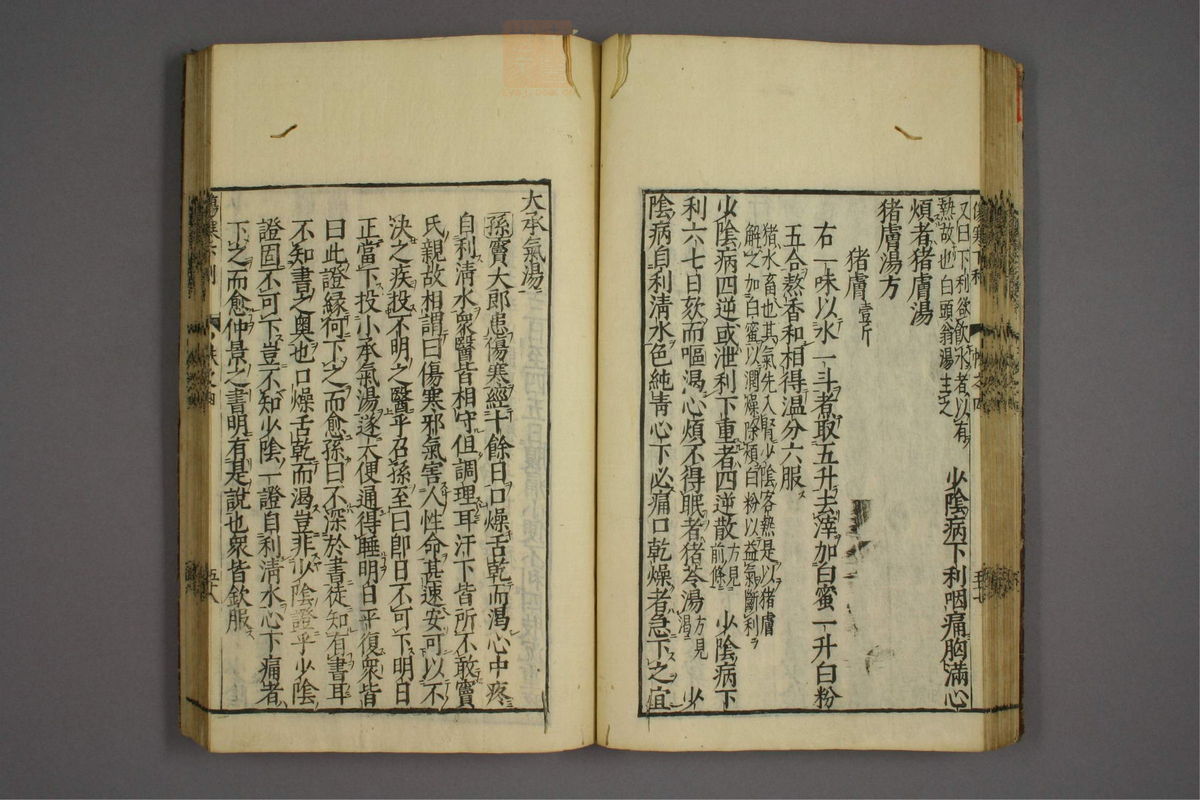 又曰下利欲飮水者以有
熱故也白頭翁湯主之
少陰病下利咽痛胸滿心
煩者猪膚湯
猪膚湯方
猪膚壹斤
右一味以水一斗煮取五升去滓加白蜜一升白粉
五合熬香和相得温分六服
猪水畜也其氣先入腎少陰客熱是以猪膚
解之加白蜜以潤燥除煩白粉以益氣斷利
少陰病四逆或泄利下重者四逆散方見前條 少陰病下
利六七日欬而嘔渴心煩不得眠者猪苓湯方見渴 少
陰病自利淸水色純靑心下必痛口乾燥者急下之宜
大承氣湯
孫竇大郎患傷寒經十餘日口燥舌乾而渴心中疼
自利清水衆醫皆相守但調理耳汗下皆所不敢竇
氏親故相謂曰傷寒邪氣害人性命甚速安可以不
决之疾投不明之醫乎召孫至曰卽日不可下明日
正當下投小承氣湯遂大便通得睡明日平復衆皆
曰此證緣何下之而愈孫曰不深於書徒知有書耳
不知書之奧也口燥舌乾而渴豈非少陰證乎少陰
證固不可下豈不知少陰一證自利清水心下痛者
下之而愈仲景之書明有是說也衆皆欽服
五十八